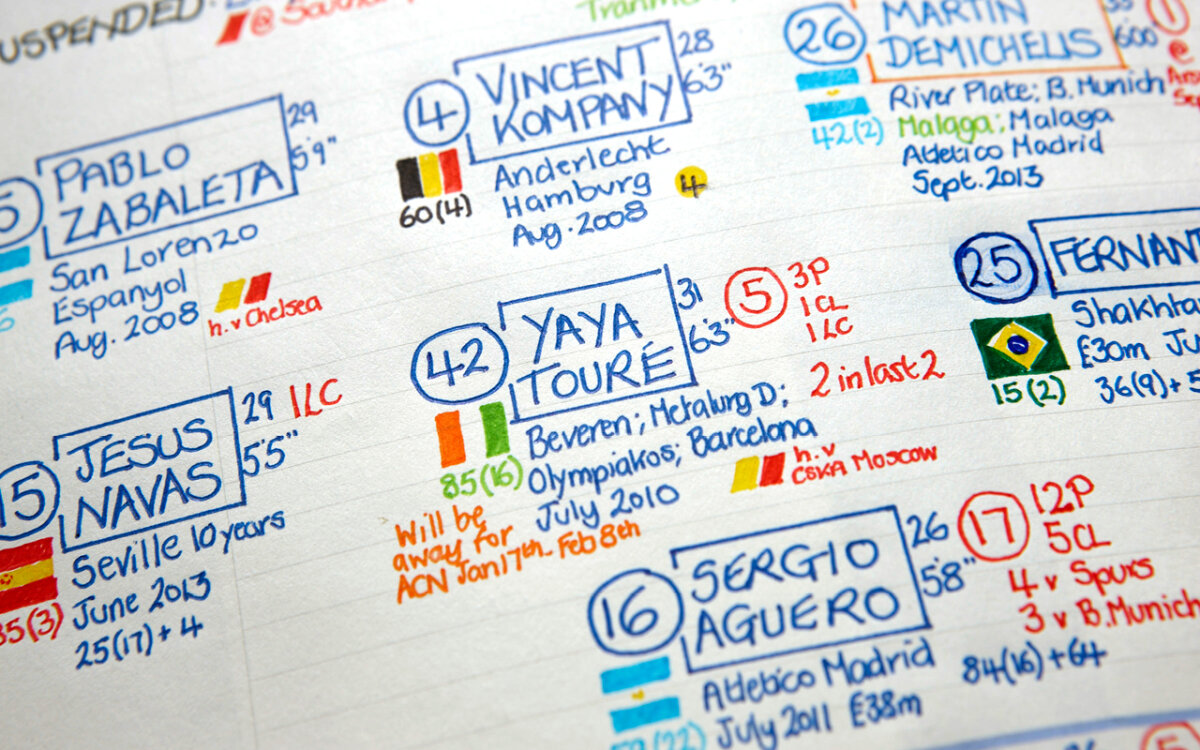 USPENDED:
Tranmer
5
PABLO
ZABALETA
29
5'9"
San Lorenzo
Espanyol
Aug. 2008
h. v Chelsea
4
VINCENT
KOMPANY
28
6'3"
60(4)
Anderlecht
Hamburg
Aug. 2008
4
26
MARTIN
DEMICHELIS
600'
42(2)
River Plate; B. Munich
Malaga; Malaga
Atletico Madrid
Sept. 2013
15
JESUS
NAVAS
29 1LC
5'5"
35(3)
Seville 10 years
June 2013
25(17) + 4
42
YAYA
TOURÉ
31
6'3"
5
3P
1CL
1LC
2 in last 2
85(16)
Beveren; Metalurg D;
Olympiakos; Barcelona
July 2010
h. v
CSKA Moscow
Will be
away for
ACN Jan 17th - Feb 8th
25
FERNAN
Shakhta
£30m Ju
15(2)
36(9) +
16
SERGIO
AGUERO
26
5'8"
17
12P
5CL
4 v Spurs
3 v B. Munich
Atletico Madrid
July 2011 £38m
84(16) + 64